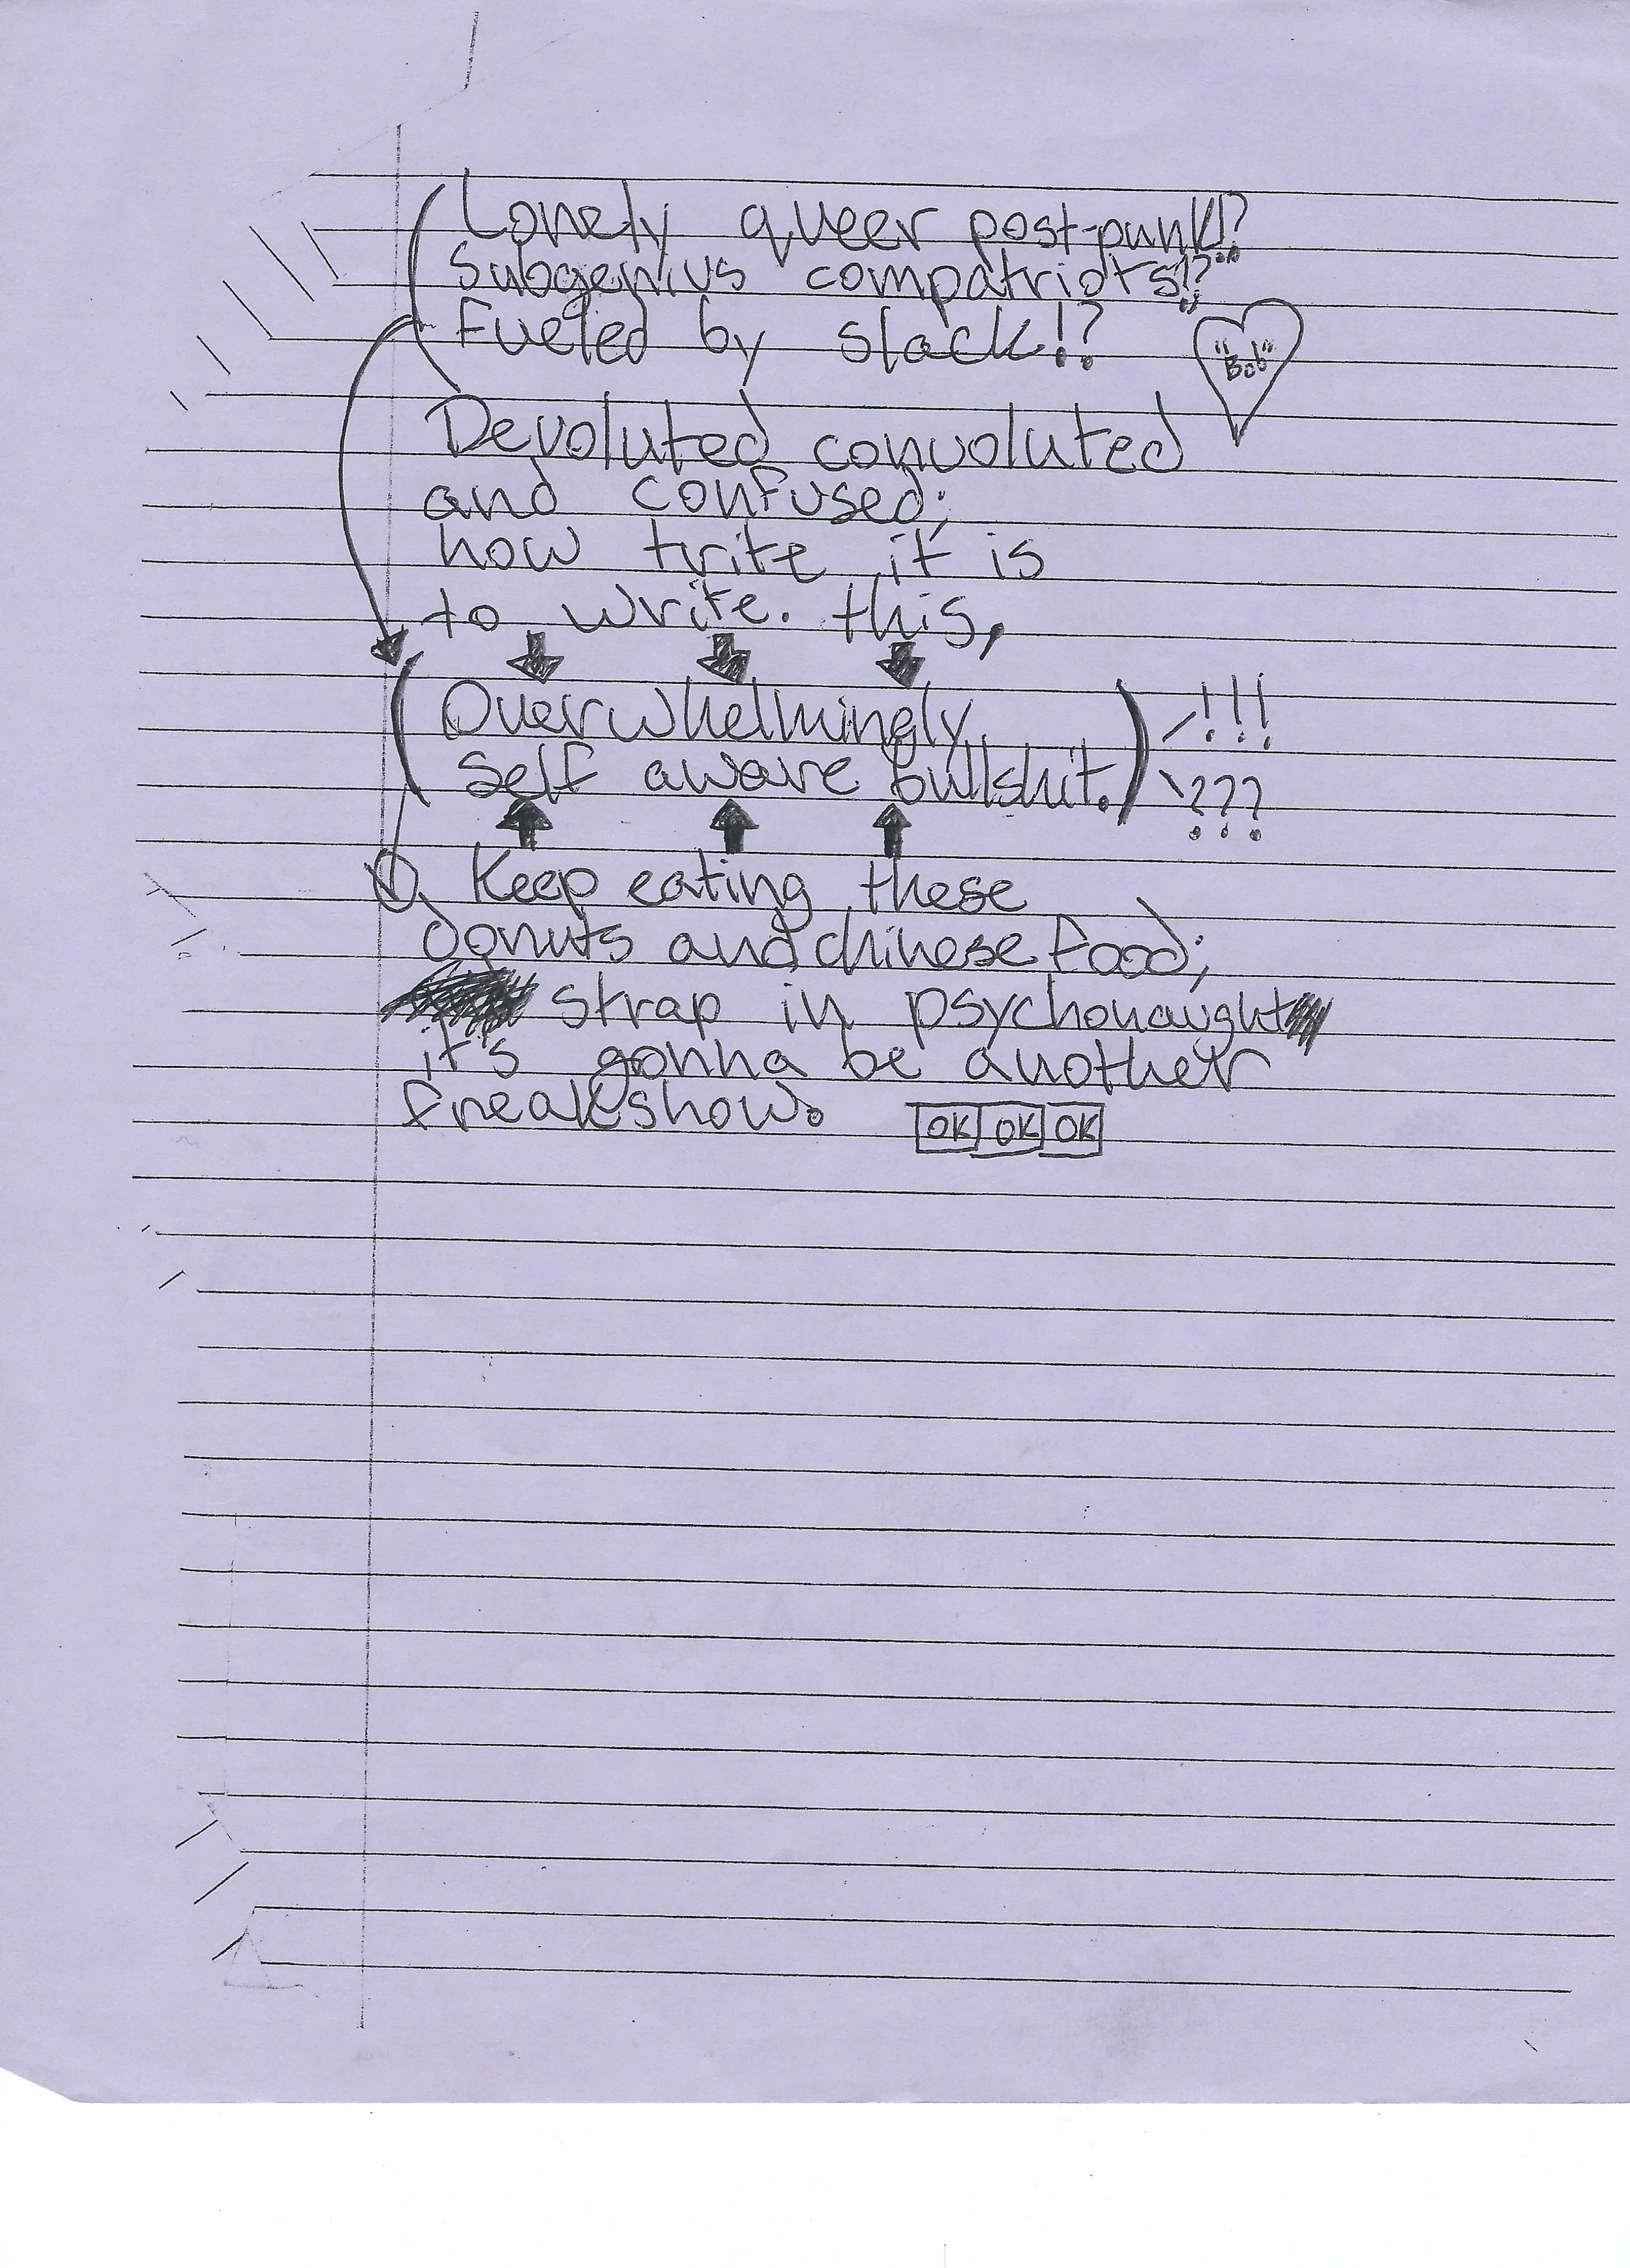 Lonely queer post-punk!?
Subgenius compatriots!?
Fueled by slack!?
"Bob"
Devoluted convoluted
and confused;
how trite it is
to write. this,
(Overwhelmingly !!!
self aware bullshit.) ???
Keep eating these
donuts and chinese food;
strap in psychonaught
it's gonna be another
freakshow. OK OK OK